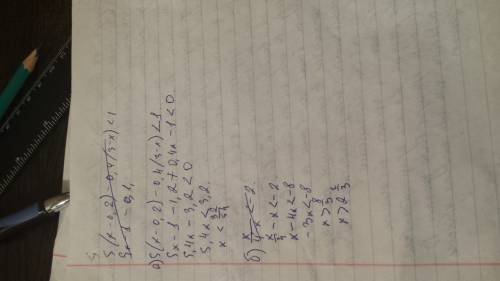 5(x-0,2)-0,4(3-x)<1
5x-1-0,1,
а) 5(x-0,2)-0,4(3-x)<1
5x-1-1,2+0,4x-1<0
5,4x-3,2<0
5,4x<3,2.
x<32/54
б) x/4x<-2.
x/4-x<-2
x-4x<-8
-3x<-8
x>8/3
x>2 2/3.